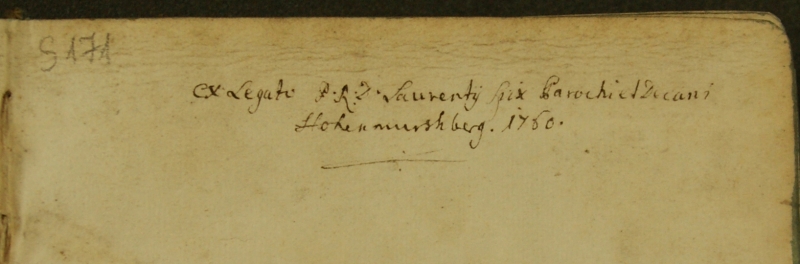 S 171
ex Legato P. R. D. Laurentÿ Spix Parochi et Decani
Hohenmurshberg. 1760.